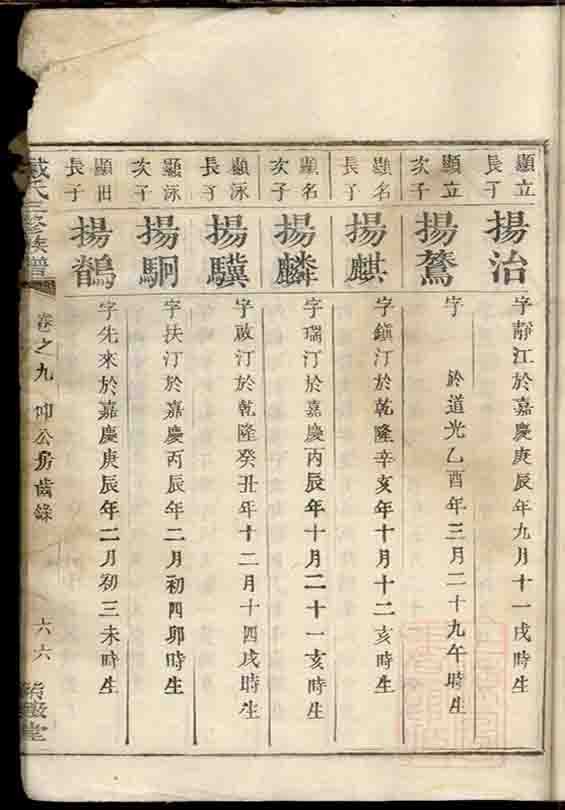 顯立長子
揚治
字靜江於嘉慶庚辰年九月十一戌時生
顯立次子
揚鶩
字　於道光乙酉年三月二十九午時生
顯名長子
揚麒
字鎮汀於乾隆辛亥年十月十二亥時生
顯名次子
揚麟
字瑞汀於嘉慶丙辰年十月二十一亥時生
顯泳長子
揚驥
字啟汀於乾隆癸丑年十二月十四戌時生
顯泳次子
揚駉
字扶汀於嘉慶丙辰年二月初四卯時生
顯田長子
揚鶺
字先來於嘉慶庚辰年二月初三未時生
戴氏三修族譜
卷之九　卬公房齒錄　六六